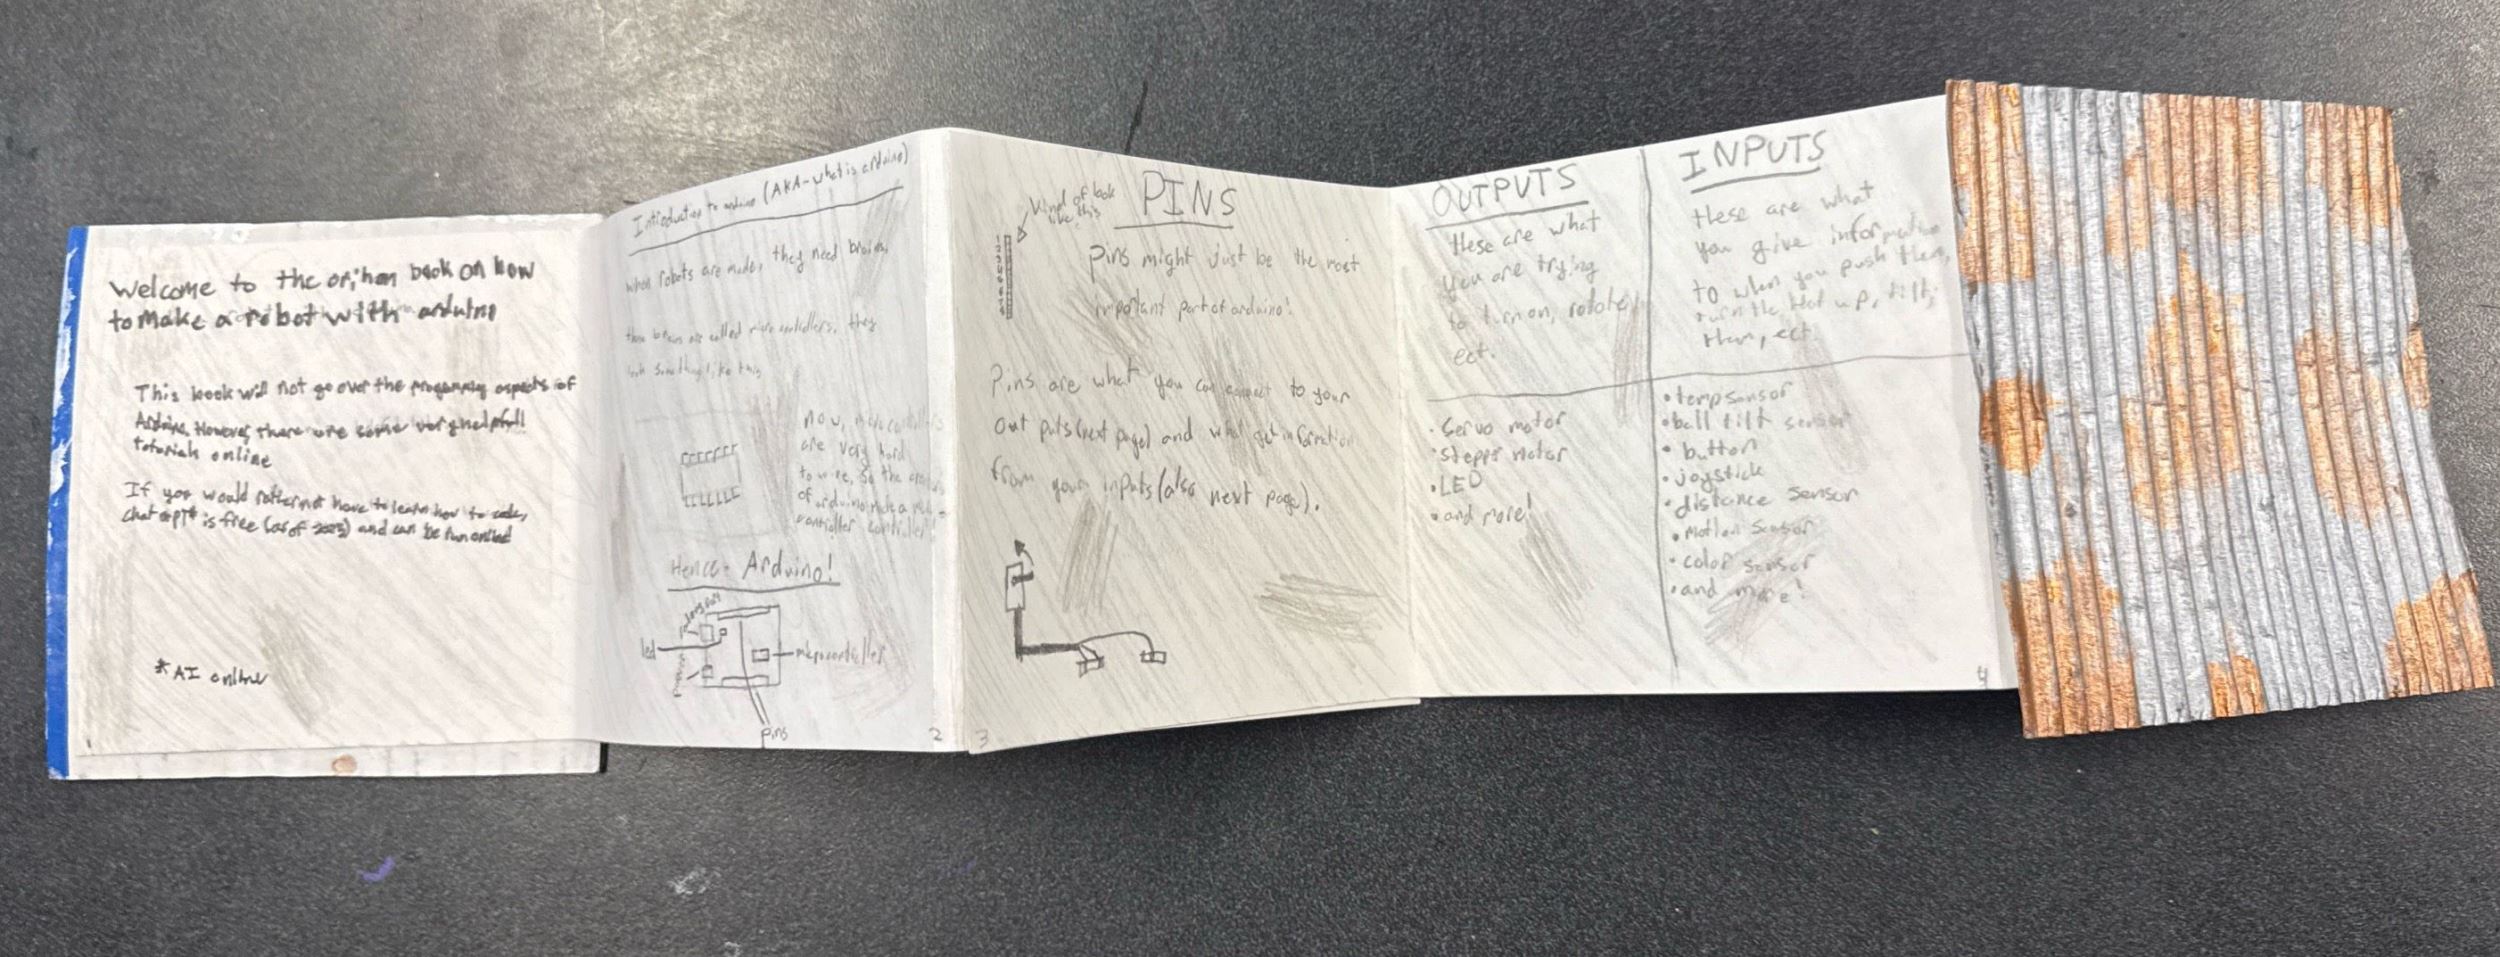 Welcome to the book on how
to make a robot with arduino
This book will not go over the programing aspects of
Arduino, However, there are some very helpfull
tutorials online
If you would rather not have to learn how to code,
chat GPT* is free (as of 2023) and can be fun online
*AI online
1
Introduction to arduino (AKA-what is arduino)
when robots are made, they need brains,
these brains are called micro controllers. they
look something like this
now, micro controllers
are very hard
to wire, so the
of arduino made a
controller controller!
Hence- Arduino!
led
microcontroller
pins
2
Kind of look
like this
PINS
1
2
3
4
5
6
7
8
Pins might just be the most
important part of arduino!
Pins are what you can connect to your
out puts (next page) and what get information
from your inputs (also next page).
3
OUTPUTS
these are what
you are trying
to turn on, rotate,
ect.
• Servo motor
• Steppr motor
• LED
• and more!
INPUTS
these are what
you give information
to when you push them,
turn the heat up, tilt
them, ect.
• temp sensor
• ball tilt sensor
• button
• joystick
• distance sensor
• motion sensor
• color sensor
• and more!
4